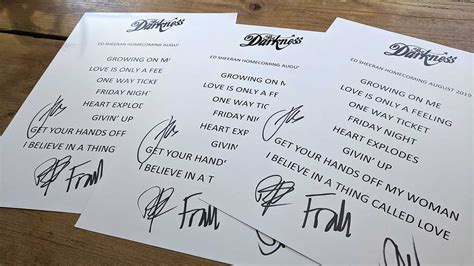 The Darkness
ED SHEERAN HOMECOMING AUGUS
GROWING ON ME
LOVE IS ONLY A FEE
ONE WAY TICKET
FRIDAY NIGHT
HEART EXPLODES
GIVIN' UP
GET YOUR HANDS OFF
I BELIEVE IN A THING
The Darkness
ED SHEERAN HOMECOMING AUGU
GROWING ON
LOVE IS ONLY A
ONE WAY TICKET
FRIDAY NIGHT
HEART EXPLO
GIVIN'
GET YOUR HAND'
I BELIEVE IN A T
The Darkness
ED SHEERAN HOMECOMING AUGUST 2019
GROWING ON ME
LOVE IS ONLY A FEELING
ONE WAY TICKET
FRIDAY NIGHT
HEART EXPLODES
GIVIN' UP
GET YOUR HANDS OFF MY WOMAN
I BELIEVE IN A THING CALLED LOVE